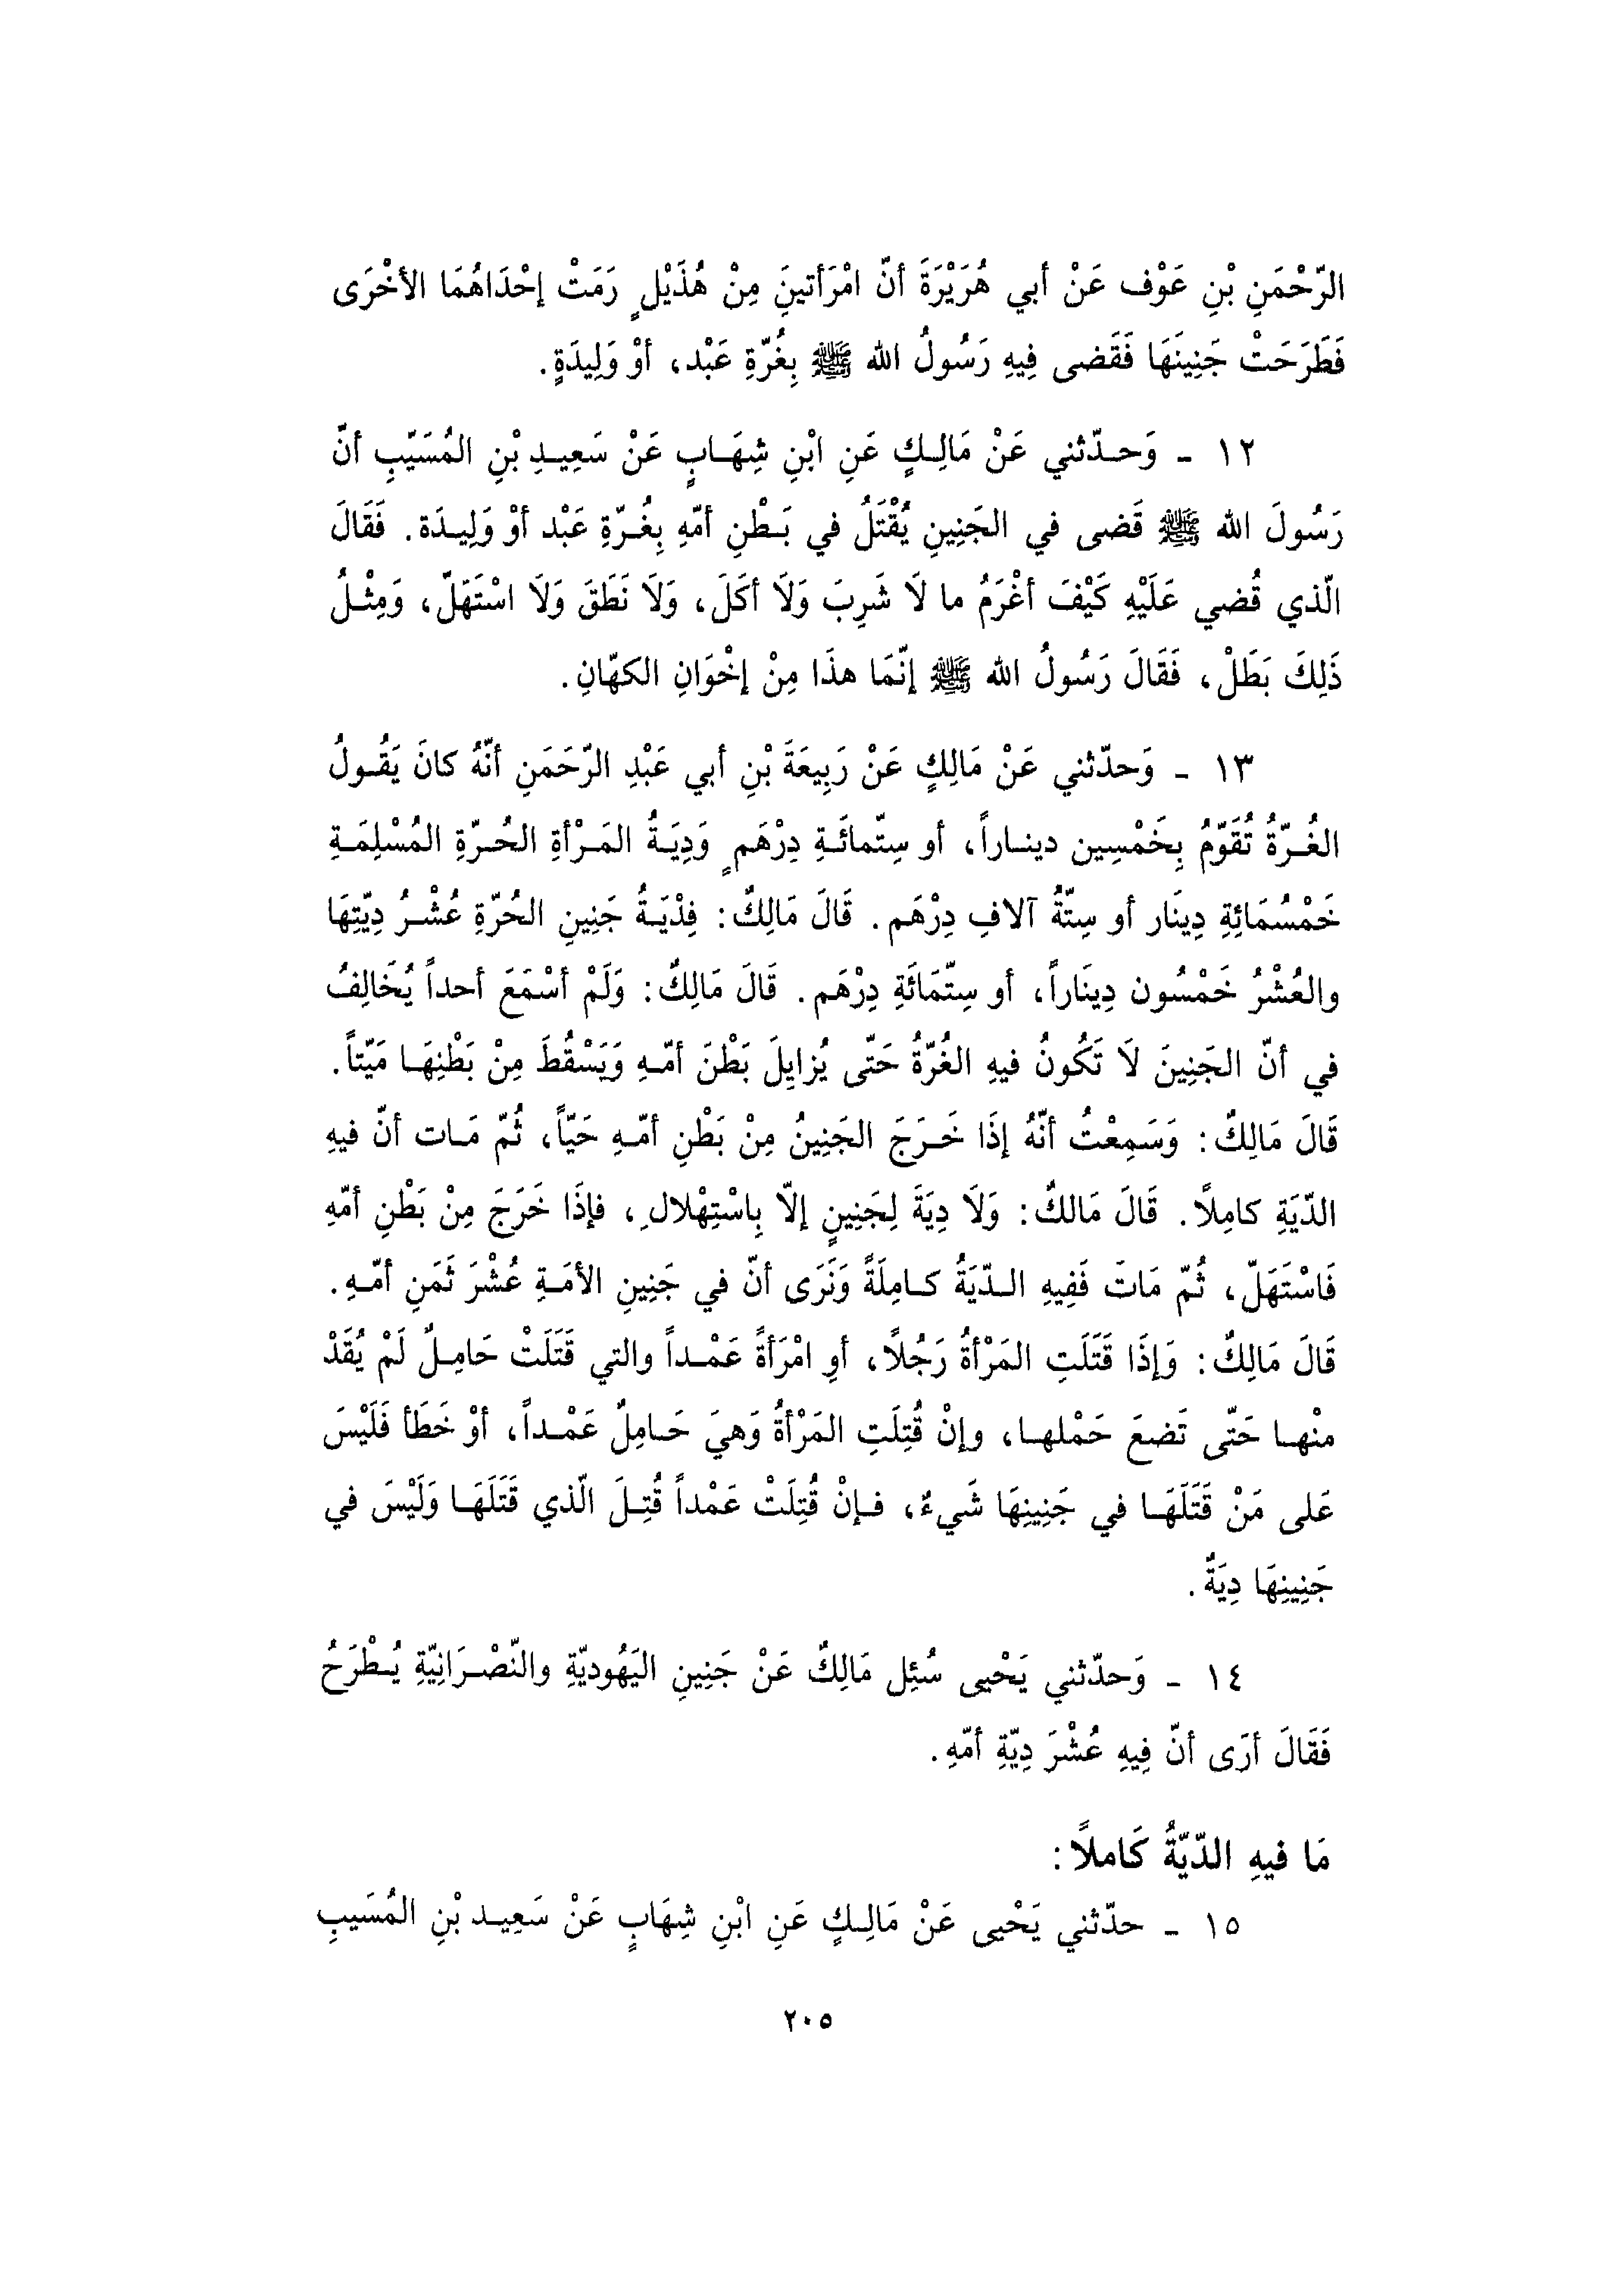 الرّحْمَنِ بْنِ عَوْف عَنْ أبي هُرَيْرَةَ أنّ امْرَأتينَ مِنْ هُذَيْلٍ رَمَتْ إحْدَاهُمَا الأخْرَى
فَطَرَحَتْ جَنِينَهَا فَقَضى فِيهِ رَسُولُ الله ﷺ بِغُرّةِ عَبْد، أوْ وَلِيدَةٍ.
١٢ - وَحدّثني عَنْ مَالِكٍ عَنِ ابْنِ شِهَابٍ عَنْ سَعِيدِ بْنِ المُسَيّبِ أنّ
رَسُولَ الله ﷺ قَضى في الجَنِينِ يُقْتَلُ في بَطْنِ أمّهِ بِغُرّةِ عَبْد أوْ وَلِيدَة. فَقَالَ
الّذي قُضي عَلَيْهِ كَيْفَ أغْرَمُ ما لَا شَرِبَ وَلَا أكَلَ، وَلَا نَطَقَ وَلَا اسْتَهَلّ، وَمِثْلُ
ذَلِكَ بَطَلْ، فَقَالَ رَسُولُ الله ﷺ إنّمَا هذَا مِنْ إخْوَانِ الكهّانِ.
١٣ - وَحدّثني عَنْ مَالِكٍ عَنْ رَبِيعَةَ بْنِ أبي عَبْدِ الرّحَمَنِ أنّهُ كانَ يَقُولُ
الغُرّةُ تُقَوّمُ بِخَمْسِين ديناراً، أو سِتّمائَةِ دِرْهَمٍ وَدِيَةُ المَرْأةِ الحُرّةِ المُسْلِمَةِ
خَمْسُمَائِةِ دِينَار أو سِتّةُ آلافِ دِرْهَم. قَالَ مَالِكٌ: فِدْيَةُ جَنِينِ الحُرّةِ عُشْرُ دِيّتِهَا
والعُشْرُ خَمْسُون دِينَاراً، أو سِتّمَائَةِ دِرْهَم. قَالَ مَالِكٌ: وَلَمْ أسْمَعَ أحداً يُخَالِفُ
في أنّ الجَنِينَ لَا تَكُونُ فيهِ الغُرّةُ حَتّى يُزايِلَ بَطْنَ أمّهِ وَيَسْقُطَ مِنْ بَطْنِهَا مَيّتاً.
قَالَ مَالِكٌ: وَسَمِعْتُ أنّهُ إذَا خَرَجَ الجَنِينُ مِنْ بَطْنِ أمّهِ حَيّاً، ثُمّ مَات أنّ فيهِ
الدّيَةِ كامِلًا. قَالَ مَالكٌ: وَلَا دِيَةَ لِجَنِينٍ إلّا بِاسْتِهْلالِ، فإذَا خَرَجَ مِنْ بَطْنِ أمّهِ
فَاسْتَهَلّ، ثُمّ مَاتَ فَفِيهِ الدّيَةُ كامِلَةً وَنَرَى أنّ في جَنِينِ الأمَةِ عُشْرَ ثَمَنِ أمّهِ.
قَالَ مَالِكٌ: وَإذَا قَتَلَتِ المَرْأةُ رَجُلًا، أوِ امْرَأةً عَمْداً والتي قَتَلَتْ حَامِلٌ لَمْ يُقَدْ
منْها حَتّى تَضعَ حَمْلها، وإنْ قُتِلَتِ المَرْأةُ وَهيَ حَامِلٌ عَمْداً، أوْ خَطَأ فَلَيْسَ
عَلى مَنْ قَتَلَهَا في جَنِينِهَا شَيءٌ، فإنْ قُتِلَتْ عَمْداً قُتِلَ الّذي قَتَلَهَا وَلَيْسَ في
جَنِينِهَا دِيَةٌ.
١٤ - وَحدّثني يَحْيى سُئِل مَالِكٌ عَنْ جَنِينِ اليَهُوديّةِ والنّصْرَانِيّةِ يُطْرَحُ
فَقَالَ أرَى أنّ فِيهِ عُشْرَ دِيّةِ أمّهِ.
مَا فيهِ الدّيّةُ كَاملًا:
١٥ - حدّثني يَحْيى عَنْ مَالِكٍ عَنِ ابْنِ شِهَابٍ عَنْ سَعِيد بْنِ المُسَيبِ
٢٠٥